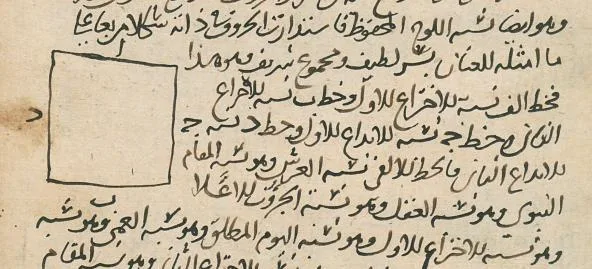 وهو ايضا نسبة اللوح المحفوظ فا ستدارت الحروف في ذاته شكلا مربعا علي
ما امثله للعيان بسر لطيف ومجموع شريف وهو هذا
ا
فخط الف نسبة للاختراع للاول وخط ب نسبة للاختراع
د
الثاني وخط جـ نسبة للابداع للاول وخط د نسبة جـ
للابداع الثاني فالخط الالفي نسبة العرش وهو نسبة المقام
النبوي وهو نسبة العقل وهو نسبة الجبروت الاعلا
ب
وهو نسبة للاختراع للاول وهو نسبة اليوم المطلق وهو نسبة وهو نسبة
للاختراع وهو نسبة المقام